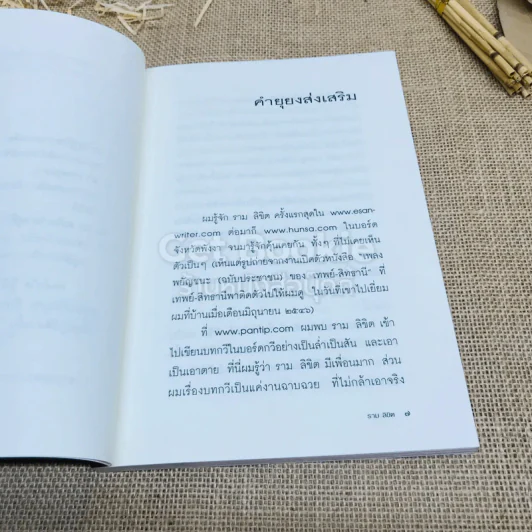 คำยุยงส่งเสริม
ผมรู้จัก ราม ลิขิต ครั้งแรกสุดใน www.esan-
writer.com ต่อมาก็ www.hunsa.com ในบอร์ด
จังหวัดพังงา จนมารู้จักคุ้นเคยกัน ทั้งๆ ที่ไม่เคยเห็น
ตัวเป็นๆ (เห็นแต่รูปถ่ายจากงานเปิดตัวหนังสือ "เพลง
พยัญชนะ (ฉบับประชาชน) ของ เทพย์-สิทธานี" ที่
เทพย์-สิทธานีพาติดตัวไปให้ผมดู ในวันที่เขาไปเยี่ยม
ผมที่บ้านเมื่อเดือนมิถุนายน ๒๕๔๖)
ที่ www.pantip.com ผมพบ ราม ลิขิต เข้า
ไปเขียนบทกวีในบอร์ดกวีอย่างเป็นล่ำเป็นสัน และเอา
เป็นเอาตาย ที่นี่ผมรู้ว่า ราม ลิขิต มีเพื่อนมาก ส่วน
ผมเรื่องบทกวีเป็นแค่งานฉาบฉวย ที่ไม่กล้าเอาจริง
ราม ลิขิต ๗